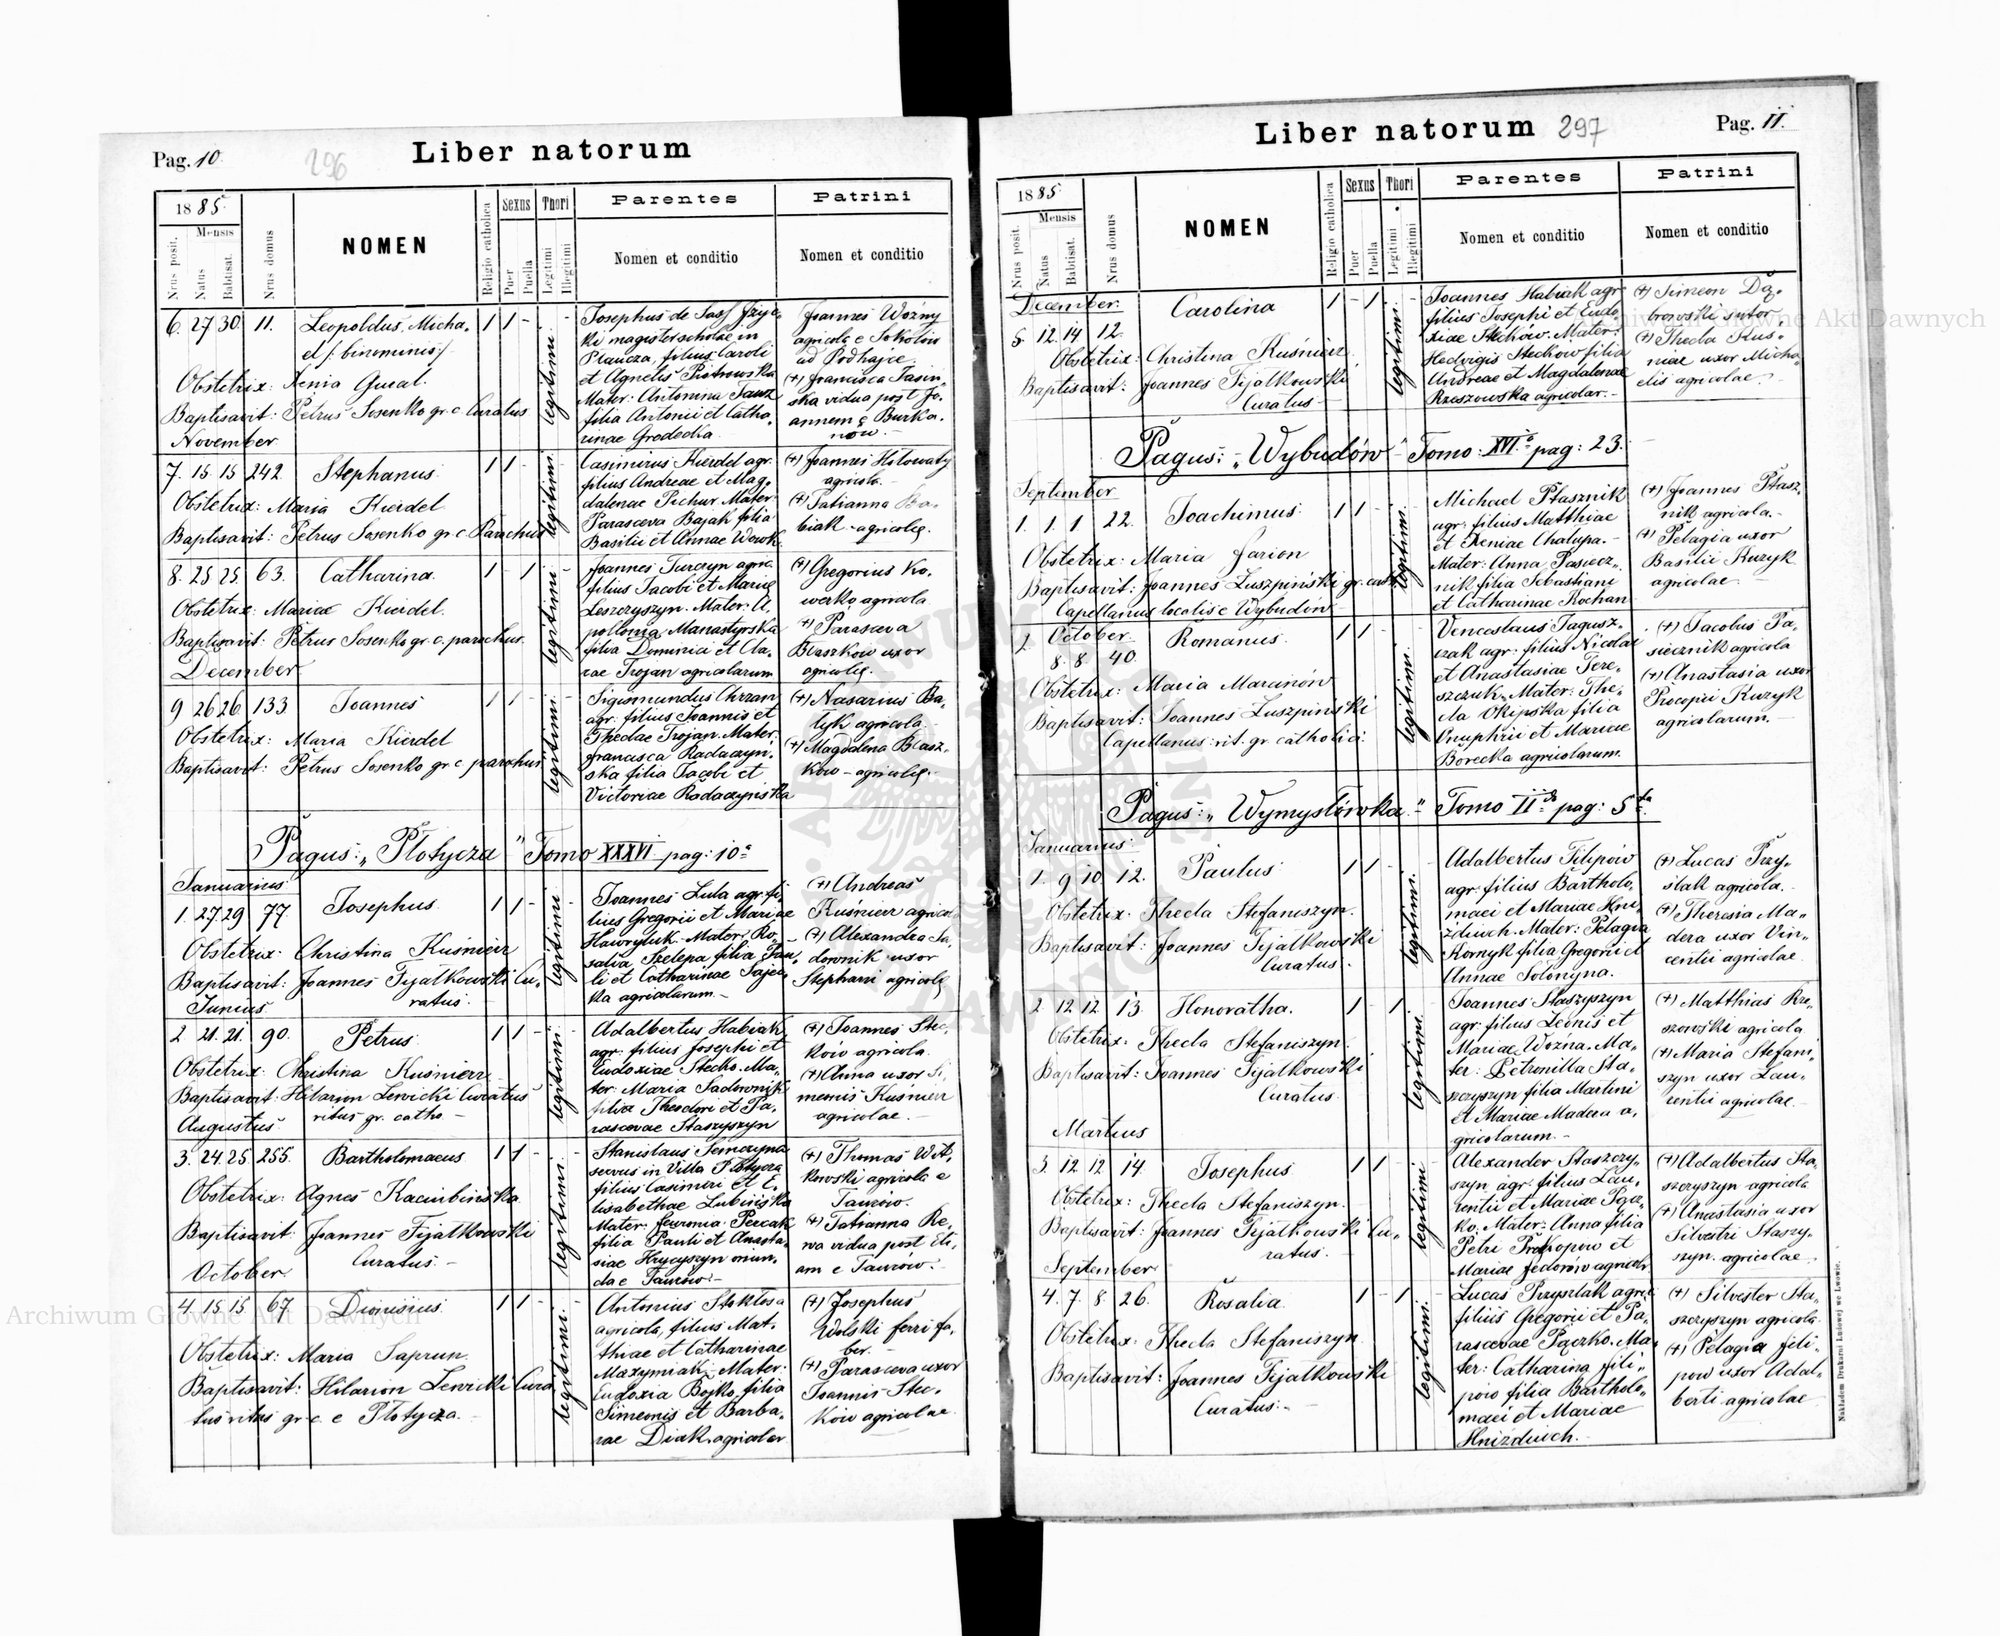 Pag. 10
296
Liber natorum
1885.
Mensis
Nrus posit.
Natus
Babtisat.
Nrus domus
NOMEN
Religio catholica
Sexus
Puer
Puella
Thori
Legitimi
Illegitimi
Parentes
Nomen et conditio
Patrini
Nomen et conditio
6. 27 30. 11. Leopoldus, Micha,
el /: binominis /
Obstetrix: Xenia Gucal.
Baptisavit: Petrus Sosenko gr. c. Curatus
legitimi
Josephus de Sas
ki magister scholae in
Plaucza, filius Caroli
et Agnetis Piotrowska
Mater: Antonina
filia Antonii et Catha,
rinae Grodecka.
Joannes Woźny
agricola e Sokolow
ad Podhajce.
(+) Francisca Jasin,
ska vidua post Jo,
annem e Burka,
now.
November
7. 15. 15 242. Stephanus.
Obstetrix: Maria Kierdel
Baptisavit: Petrus Sosenko gr. c. Parochus
legitimi
Casimirus Kierdel agr.
filius Andreae et Mag,
dalenae Pichur. Mater:
Parasceva Bajak filia
Basilii et Annae Wowk.
(+) Joannes Hołowaty
agricola.
(+) Tatianna Ba,
biak - agricolę.
8. 25. 25. 63. Catharina.
Obstetrix: Mariae Kierdel.
Baptisavit: Petrus Sosenko gr. c. parochus.
legitimi
Joannes Turczyn agric.
filius Jacobi et Marię
Leszczyszyn. Mater: A,
pollonia Manastyrska
filia Dominici et Cla,
rae Trojan agricolarum
(+) Gregorius Ko,
werko agricola
(+) Parasceva
Błaszkow uxor
agricolę.
December
9 26 26 133. Joannes
Obstetrix: Maria Kierdel
Baptisavit: Petrus Sosenko gr. c. parochus
legitimi
Sigismundus Chrzan
agr. filius Joannis et
Theclae Trojan. Mater:
Francisca Radaczyń,
ska filia Jacobi et
Victoriae Radaczyńska
(+) Nasarius Ba,
tyk agricola.
(+) Magdalena Błasz,
kow - agricolę.
Pagus: „Płotycza" Tomo XXXVI pag: 10a
Januarius
1. 27 29 77. Josephus.
Obstetrix: Christina Kuśnierz
Baptisavit: Joannes Fijałkowski Cu,
ratus.
legitimi
Joannes Lula agr. fi,
lius Gregorii et Mariae
Hawryluk. Mater: Ro,
salia Szelepa filia Pau,
li et Catharinae
ka agricolarum.
(+) Andreas
Kuśnierz agricol
(+) Alexandra Sa,
downik uxor
Stephani agricolę
Junius
2. 21. 21. 90. Petrus.
Obstetrix: Christina Kuśnierz
Baptisavit: Hilarion Lewicki Curatus
ritus gr. catho. -
legitimi
Adalbertus Habiak
agr. filius Josephi et
Eudoxiae Stecko. Ma,
ter: Maria Sadownik
filia Theodori et Pa,
rascevae Staszyszyn
(+) Joannes Stec,
ków agricola.
(+) Anna uxor Si,
meonis Kuśnierz
agricolae.
Augustus
3. 24. 25. 255. Bartholomaeus
Obstetrix: Agnes Kaciubińska
Baptisavit: Joannes Fijałkowski
Curatus.
legitimi
Stanislaus Semczyna
servus in Villa Płotycza
filius Casimiri et E,
lisabethae Lubińska
Mater: Fevronia Percak
filia Pauli et Anasta,
siae Hrycyszyn oriun,
da e Taurow. -
(+) Thomas Wit,
kowski agricola e
Taurów.
(+) Tatianna Re,
wa vidua post Eli,
am e Taurow.
October.
4. 15 15 67. Dionisius.
Obstetrix: Maria Saprun.
Baptisavit: Hilarion Lewicki Cura,
tus ritus gr. c. e Płotycza. -
legitimi
Antonius Stokłosa
agricola, filius Mat,
thiae et Catharinae
Mazymiak. Mater:
Eudoxia Bojko, filia
Simeonis et Barba,
rae Diak agricolar
(+) Josephus
Wolski ferri fa,
ber.
(+) Parasceva uxor
Joannis Stec,
ków agricolae.
Liber natorum 297
Pag. 11.
1885.
Mensis
Nrus posit.
Natus
Babtisat.
Nrus domus
NOMEN
Religio catholica
Sexus
Puer
Puella
Thori
Legitimi
Illegitimi
Parentes
Nomen et conditio
Patrini
Nomen et conditio
December.
5. 12. 14 12. Carolina
Obstetrix: Christina Kuśnierz
Baptisavit: Joannes Fijałkowski
Curatus -
legitimi
Joannes Habiak agr.
filius Josephi et Eudo,
xiae Steckow. Mater:
Hedvigis Steckow filia
Andreae et Magdalenae
Rzeszowska agricolar. -
(+) Simeon Dą,
browski sutor
(+) Thecla Kus,
niar uxor Micha,
elis agricolae. -
Pagus: - „Wybudów" Tomo: XVIo pag: 23.
September
1. 1. 1 22. Joachimus.
Obstetrix: Maria Farion
Baptisavit: Joannes Łuszpiński gr. cath.
Capellanus localis e Wybudów -
legitimi
Michael Ptasznik
agr. filius Matthiae
et Xeniae Chałupa. -
Mater: Anna Pasiecz,
nik filia Sebastiani
et Catharinae Kochan
(+) Joannes Ptasz,
nik agricola. -
(+) Pelagia uxor
Basilii Kuzyk
agricolae -
October
2. 8. 8. 40. Romanus.
Obstetrix: Maria Maranów
Baptisavit: Joannes Łuszpiński
Capellanus rit. gr. catholici.
legitimi
Venceslaus Jagusz,
czak agr. filius Nicolai
et Anastasiae Tere,
szczuk. Mater: The,
cla Okipska filia
Onuphrii et Mariae
Borecka agricolarum.
(+) Jacobus Pa,
siecznik agricola
(+) Anastasia uxor
Procopii Kuzyk
agricolarum.
Pagus: „Wymysłówka" Tomo IIdo pag: 5ta
Januarius
1. 9 10 12. Paulus
Obstetrix: Thecla Stefaniszyn.
Baptisavit: Joannes Fijałkowski
Curatus.
legitimi
Adalbertus Filipów
agr. filius Bartholo,
maei et Mariae Hni,
zdiuch. Mater: Pelagia
Kornyk filia Gregorii et
Annae Sołonyna.
(+) Lucas Przy,
słak agricola. -
(+) Theresia Ma,
dera uxor Vin,
centii agricolae
2. 12 12. 13. Honoratha.
Obstetrix: Thecla Stefaniszyn.
Baptisavit: Joannes Fijałkowski
Curatus.
legitimi
Joannes Staszyszyn
agr. filius Leonis et
Mariae Wozna. Ma,
ter: Petronilla Sta,
szczyszyn filia Martini
et Mariae Madera a,
gricolarum. -
(+) Matthias Rze,
szowski agricola
(+) Maria Stefani,
szyn uxor Lau,
rentii agricolae. -
Martius
3. 12 12 14. Josephus
Obstetrix: Thecla Stefaniszyn.
Baptisavit: Joannes Fijałkowski Cu,
ratus. -
legitimi
Alexander Staszczy,
szyn agr. filius Lau,
rentii et Mariae Pacz,
ko. Mater: Anna filia
Petri Prokopow et
Mariae Fedorów agricolr.
(+) Adalbertus Sta,
szczyszyn agricola
(+) Anastasia uxor
Silvestri Staszy,
szyn. agricolae
September
4. 7. 8. 26. Rosalia
Obstetrix: Thecla Stefaniszyn
Baptisavit: Joannes Fijałkowski
Curatus. -
legitimi
Lucas Przyszlak agric.
filius Gregorii et Pa,
rascevae Paczko. Ma,
ter: Catharina Fili,
pow filia Bartholo,
maei et Mariae
Hnizduich. -
(+) Silvester Sta,
szczyszyn agricola.
(+) Pelagia Fili,
pow uxor Adal,
berti agricolae
Nakładem Drukarni Ludowej we Lwowie.
Archiwum Główne Akt Dawnych
Archiwum Główne Akt Dawnych